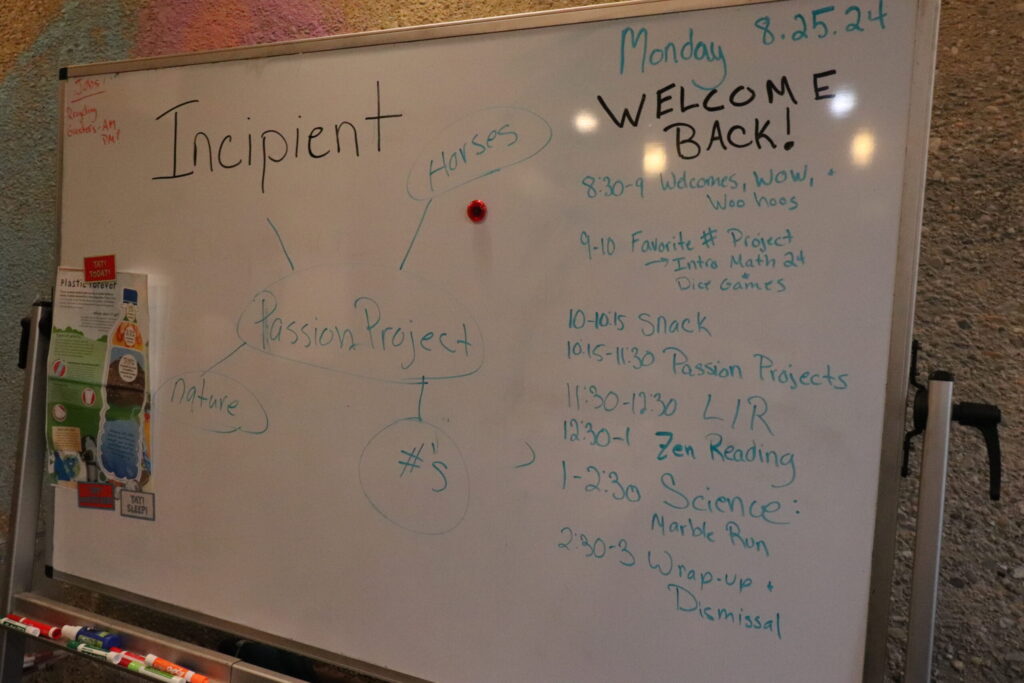 Jobs!
Recycling
Greeters-AM
PM?
Incipient
Horses
Passion Project
nature
#'s
TATI
TODAY!
Plastic Forever
TATI
SLEEP!
Monday 8.25.24
WELCOME
BACK!
8:30-9 Welcomes, WOW, +
Woo hoos
9-10 Favorite # Project
→ Intro Math 24
Dice Games
10-10:15 Snack
10:15-11:30 Passion Projects
11:30-12:30 L/R
12:30-1 Zen Reading
1-2:30 Science:
Marble Run
2:30-3 Wrap-up +
Dismissal